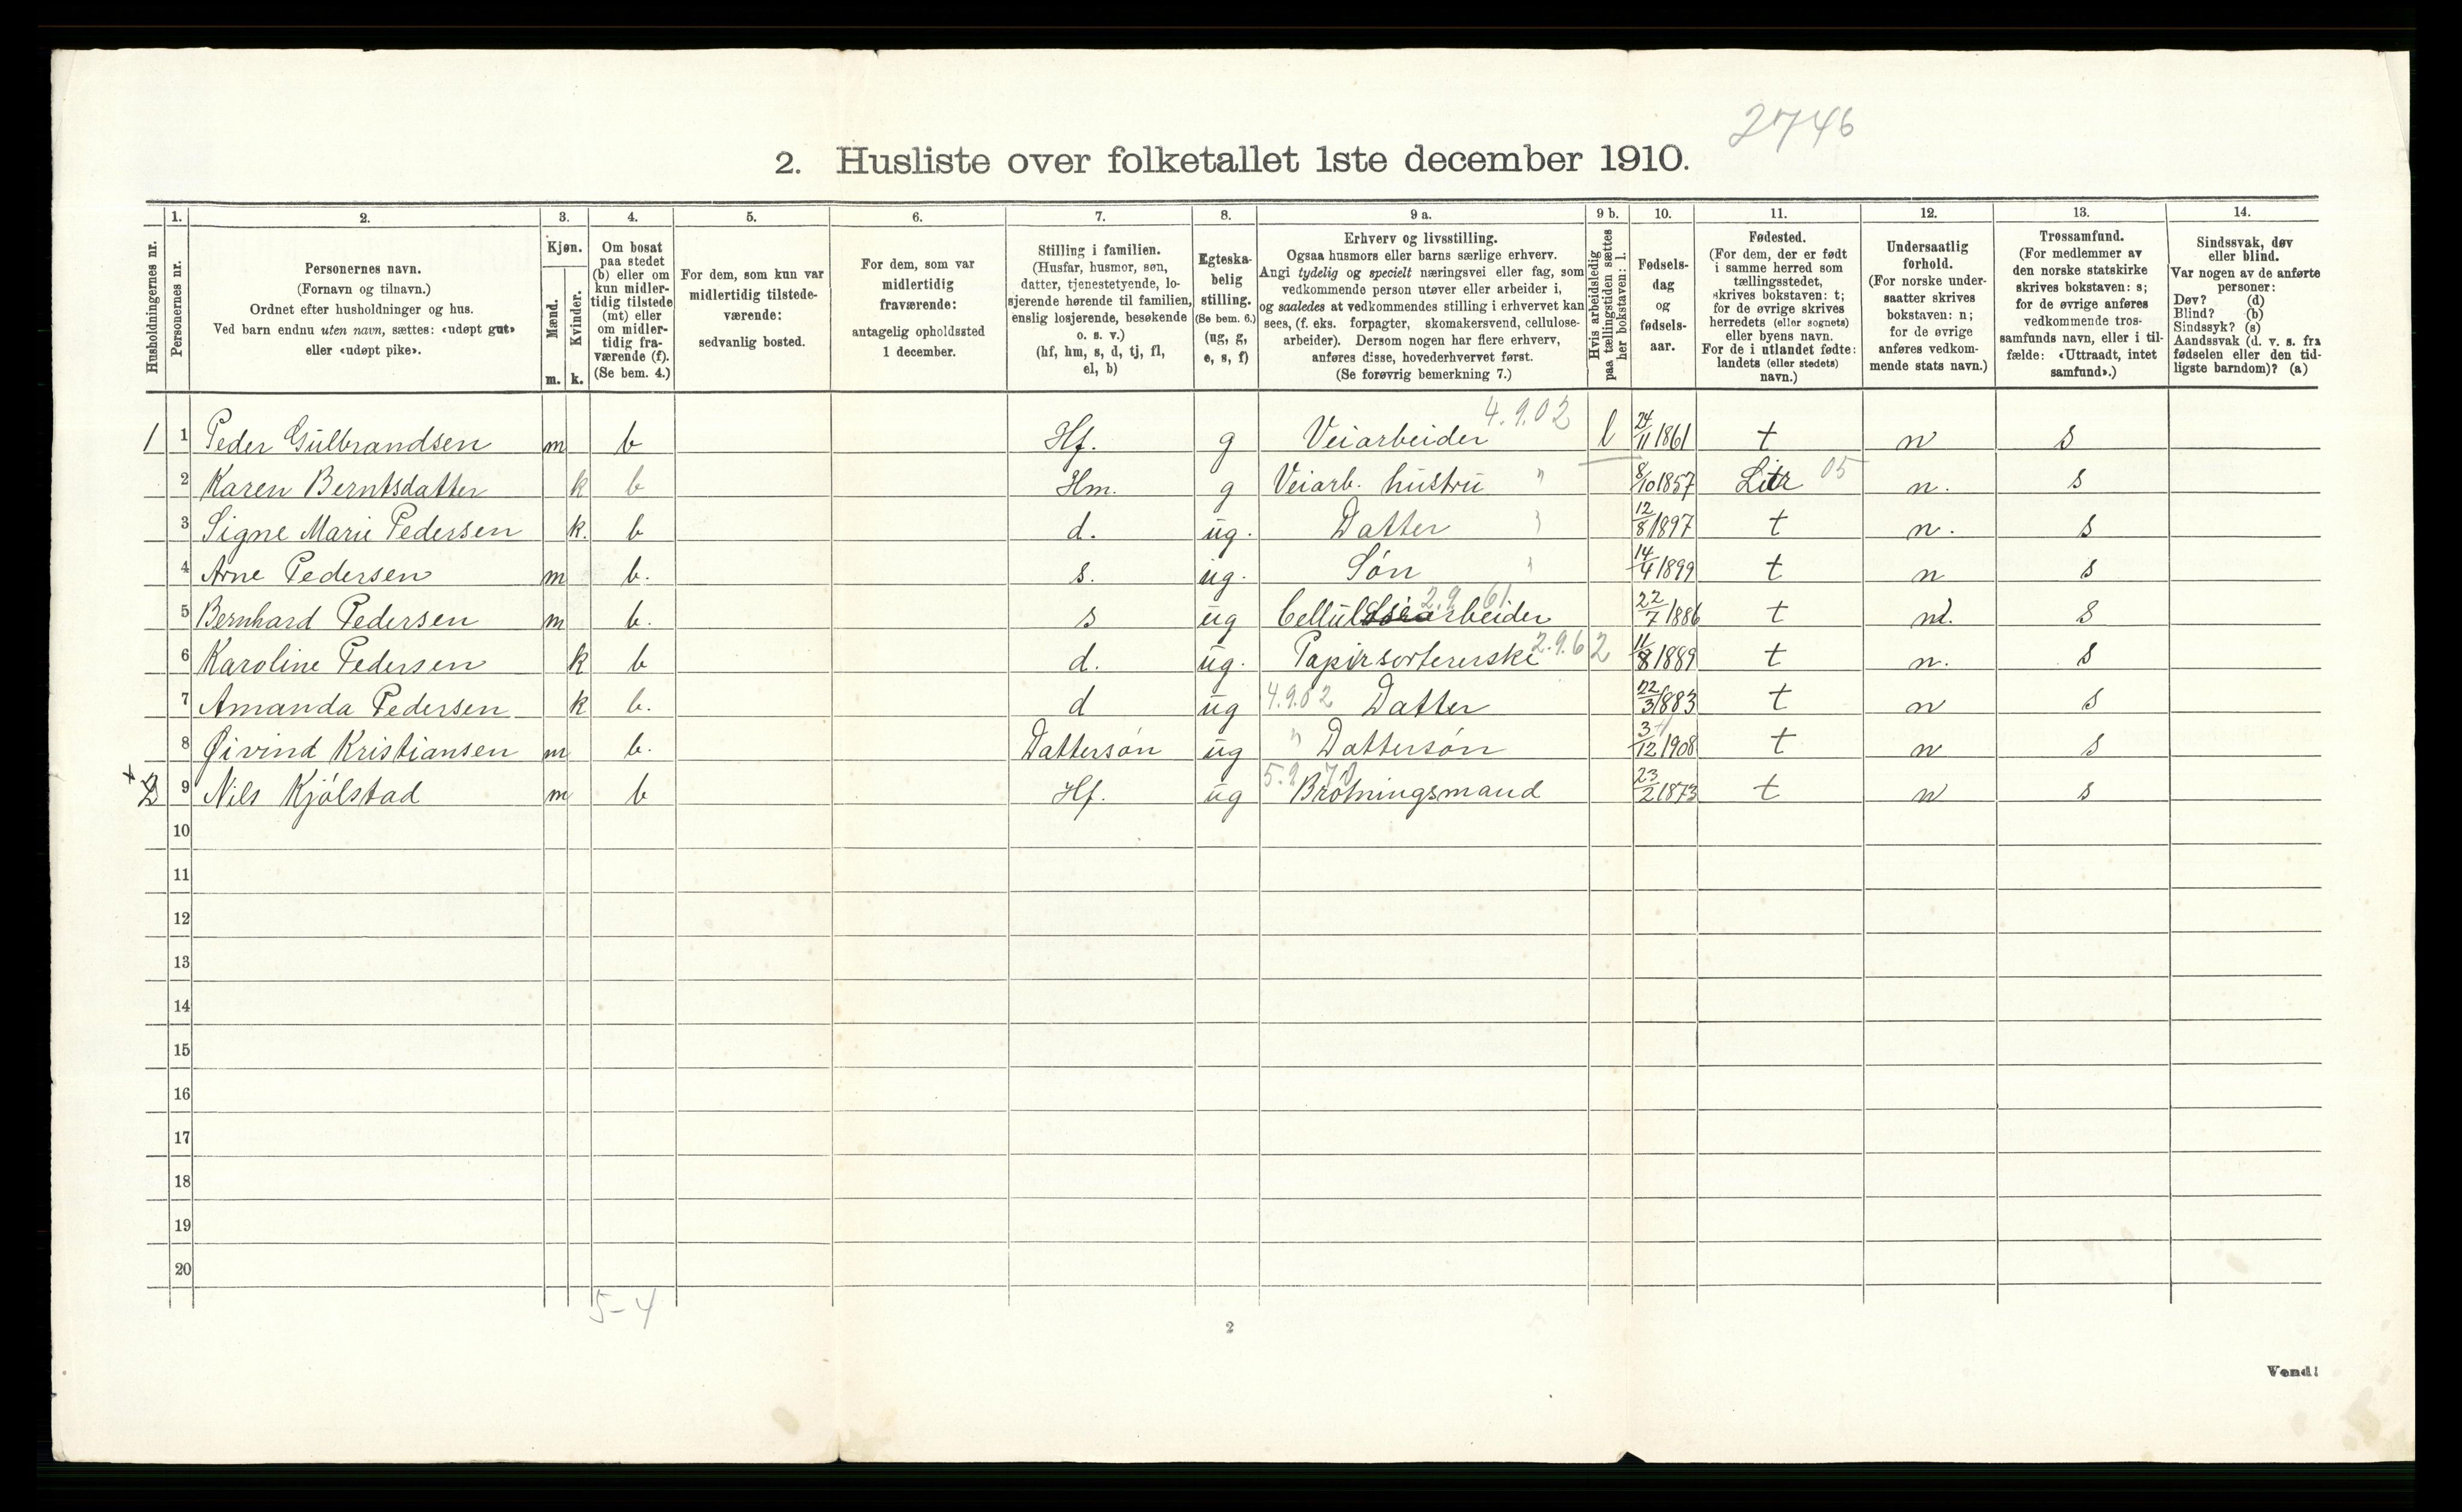 2746
2. Husliste over folketallet 1ste december 1910.
Husholdningernes nr.
1. Personernes nr.
2. Personernes navn. (Fornavn og tilnavn.) Ordnet efter husholdninger og hus. Ved barn endnu uten navn, sættes: «udøpt gut» eller «udøpt pike».
3. Kjøn. Mænd. m. Kvinder. k.
4. Om bosat paa stedet (b) eller om kun midlertidig tilstede (mt) eller om midlertidig fraværende (f). (Se bem. 4.)
5. For dem, som kun var midlertidig tilstedeværende: sedvanlig bosted.
6. For dem, som var midlertidig fraværende: antagelig opholdssted 1 december.
7. Stilling i familien. (Husfar, husmor, søn, datter, tjenestetyende, losjerende hørende til familien, enslig losjerende, besøkende o. s. v.) (hf, hm, s, d, tj, fl, el, b)
8. Egteskabelig stilling. (Se bem. 6.) (ug, g, e, s, f)
9 a. Erhverv og livsstilling. Ogsaa husmors eller barns særlige erhverv. Angi tydelig og specielt næringsvei eller fag, som vedkommende person utøver eller arbeider i, og saaledes at vedkommendes stilling i erhvervet kan sees, (f. eks. forpagter, skomakersvend, cellulosearbeider). Dersom nogen har flere erhverv, anføres disse, hovederhvervet først. (Se forøvrig bemerkning 7.)
9 b. Hvis arbeidsledig paa tællingstiden sættes her bokstaven: l.
10. Fødselsdag og fødselsaar.
11. Fødested. (For dem, der er født i samme herred som tællingsstedet, skrives bokstaven: t; for de øvrige skrives herredets (eller sognets) eller byens navn. For de i utlandet fødte: landets (eller stedets) navn.)
12. Undersaatlig forhold. (For norske undersaatter skrives bokstaven: n; for de øvrige anføres vedkommende stats navn.)
13. Trossamfund. (For medlemmer av den norske statskirke skrives bokstaven: s; for de øvrige anføres vedkommende trossamfunds navn, eller i tilfælde: «Uttraadt, intet samfund».)
14. Sindssvak, døv eller blind. Var nogen av de anførte personer: Døv? (d) Blind? (b) Sindssyk? (s) Aandssvak (d. v. s. fra fødselen eller den tidligste barndom)? (a)
1 1 Peder Gulbrandsen m b Hf. g Veiarbeider 4.9.02 l 24/11 1861 t n s
2 Karen Berntsdatter k b Hm. g Veiarb. hustru " 8/10 1857 Litr 05 n. s
3 Signe Marie Pedersen k. b d. ug. Datter " 12/8 1897 t n. s
4 Arne Pedersen m b. s. ug. Søn " 14/4 1899 t n s
5 Bernhard Pedersen m b. s ug Cellulosearbeider 2.9.61 22/7 1886 t n. s
6 Karoline Pedersen k b d. ug. Papirsortererske 2.9.62 11/8 1889 t n. s
7 Amanda Pedersen k b. d ug 4.9.02 Datter 22/3 1883 t n s
8 Øivind Kristiansen m b. Dattersøn ug " Dattersøn 3/12 1908 t n s
x 2 9 Nils Kjølstad m b Hf. ug Brøtningsmand 23/2 1873 t n s
10
11
12
13
14
15
16
17
18
19
20
5-4
2
Vend!